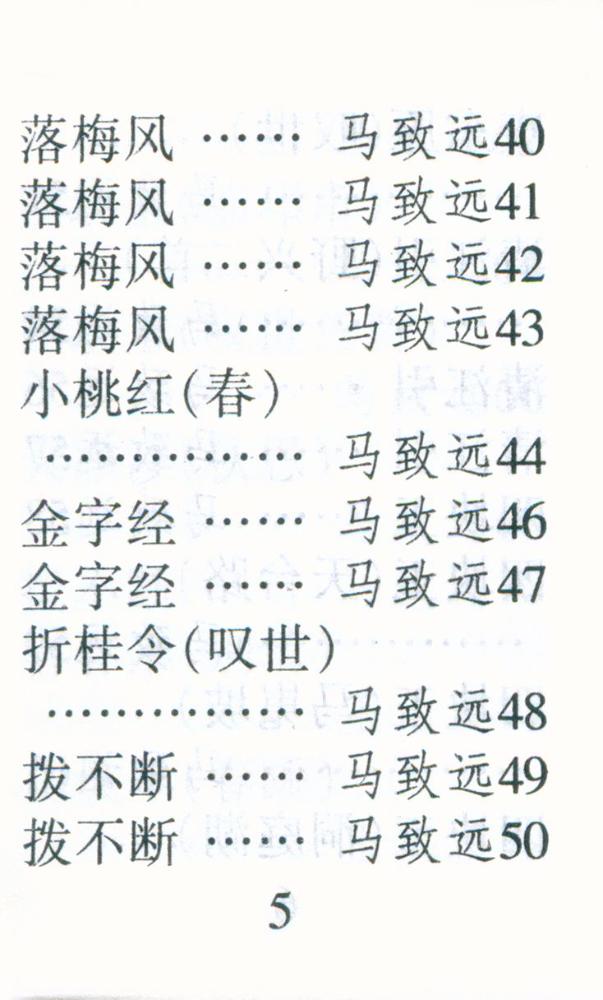 落梅风 …… 马致远40
落梅风 …… 马致远41
落梅风 …… 马致远42
落梅风 …… 马致远43
小桃红(春)
………… 马致远44
金字经 …… 马致远46
金字经 …… 马致远47
折桂令(叹世)
………… 马致远48
拨不断 …… 马致远49
拨不断 …… 马致远50
5